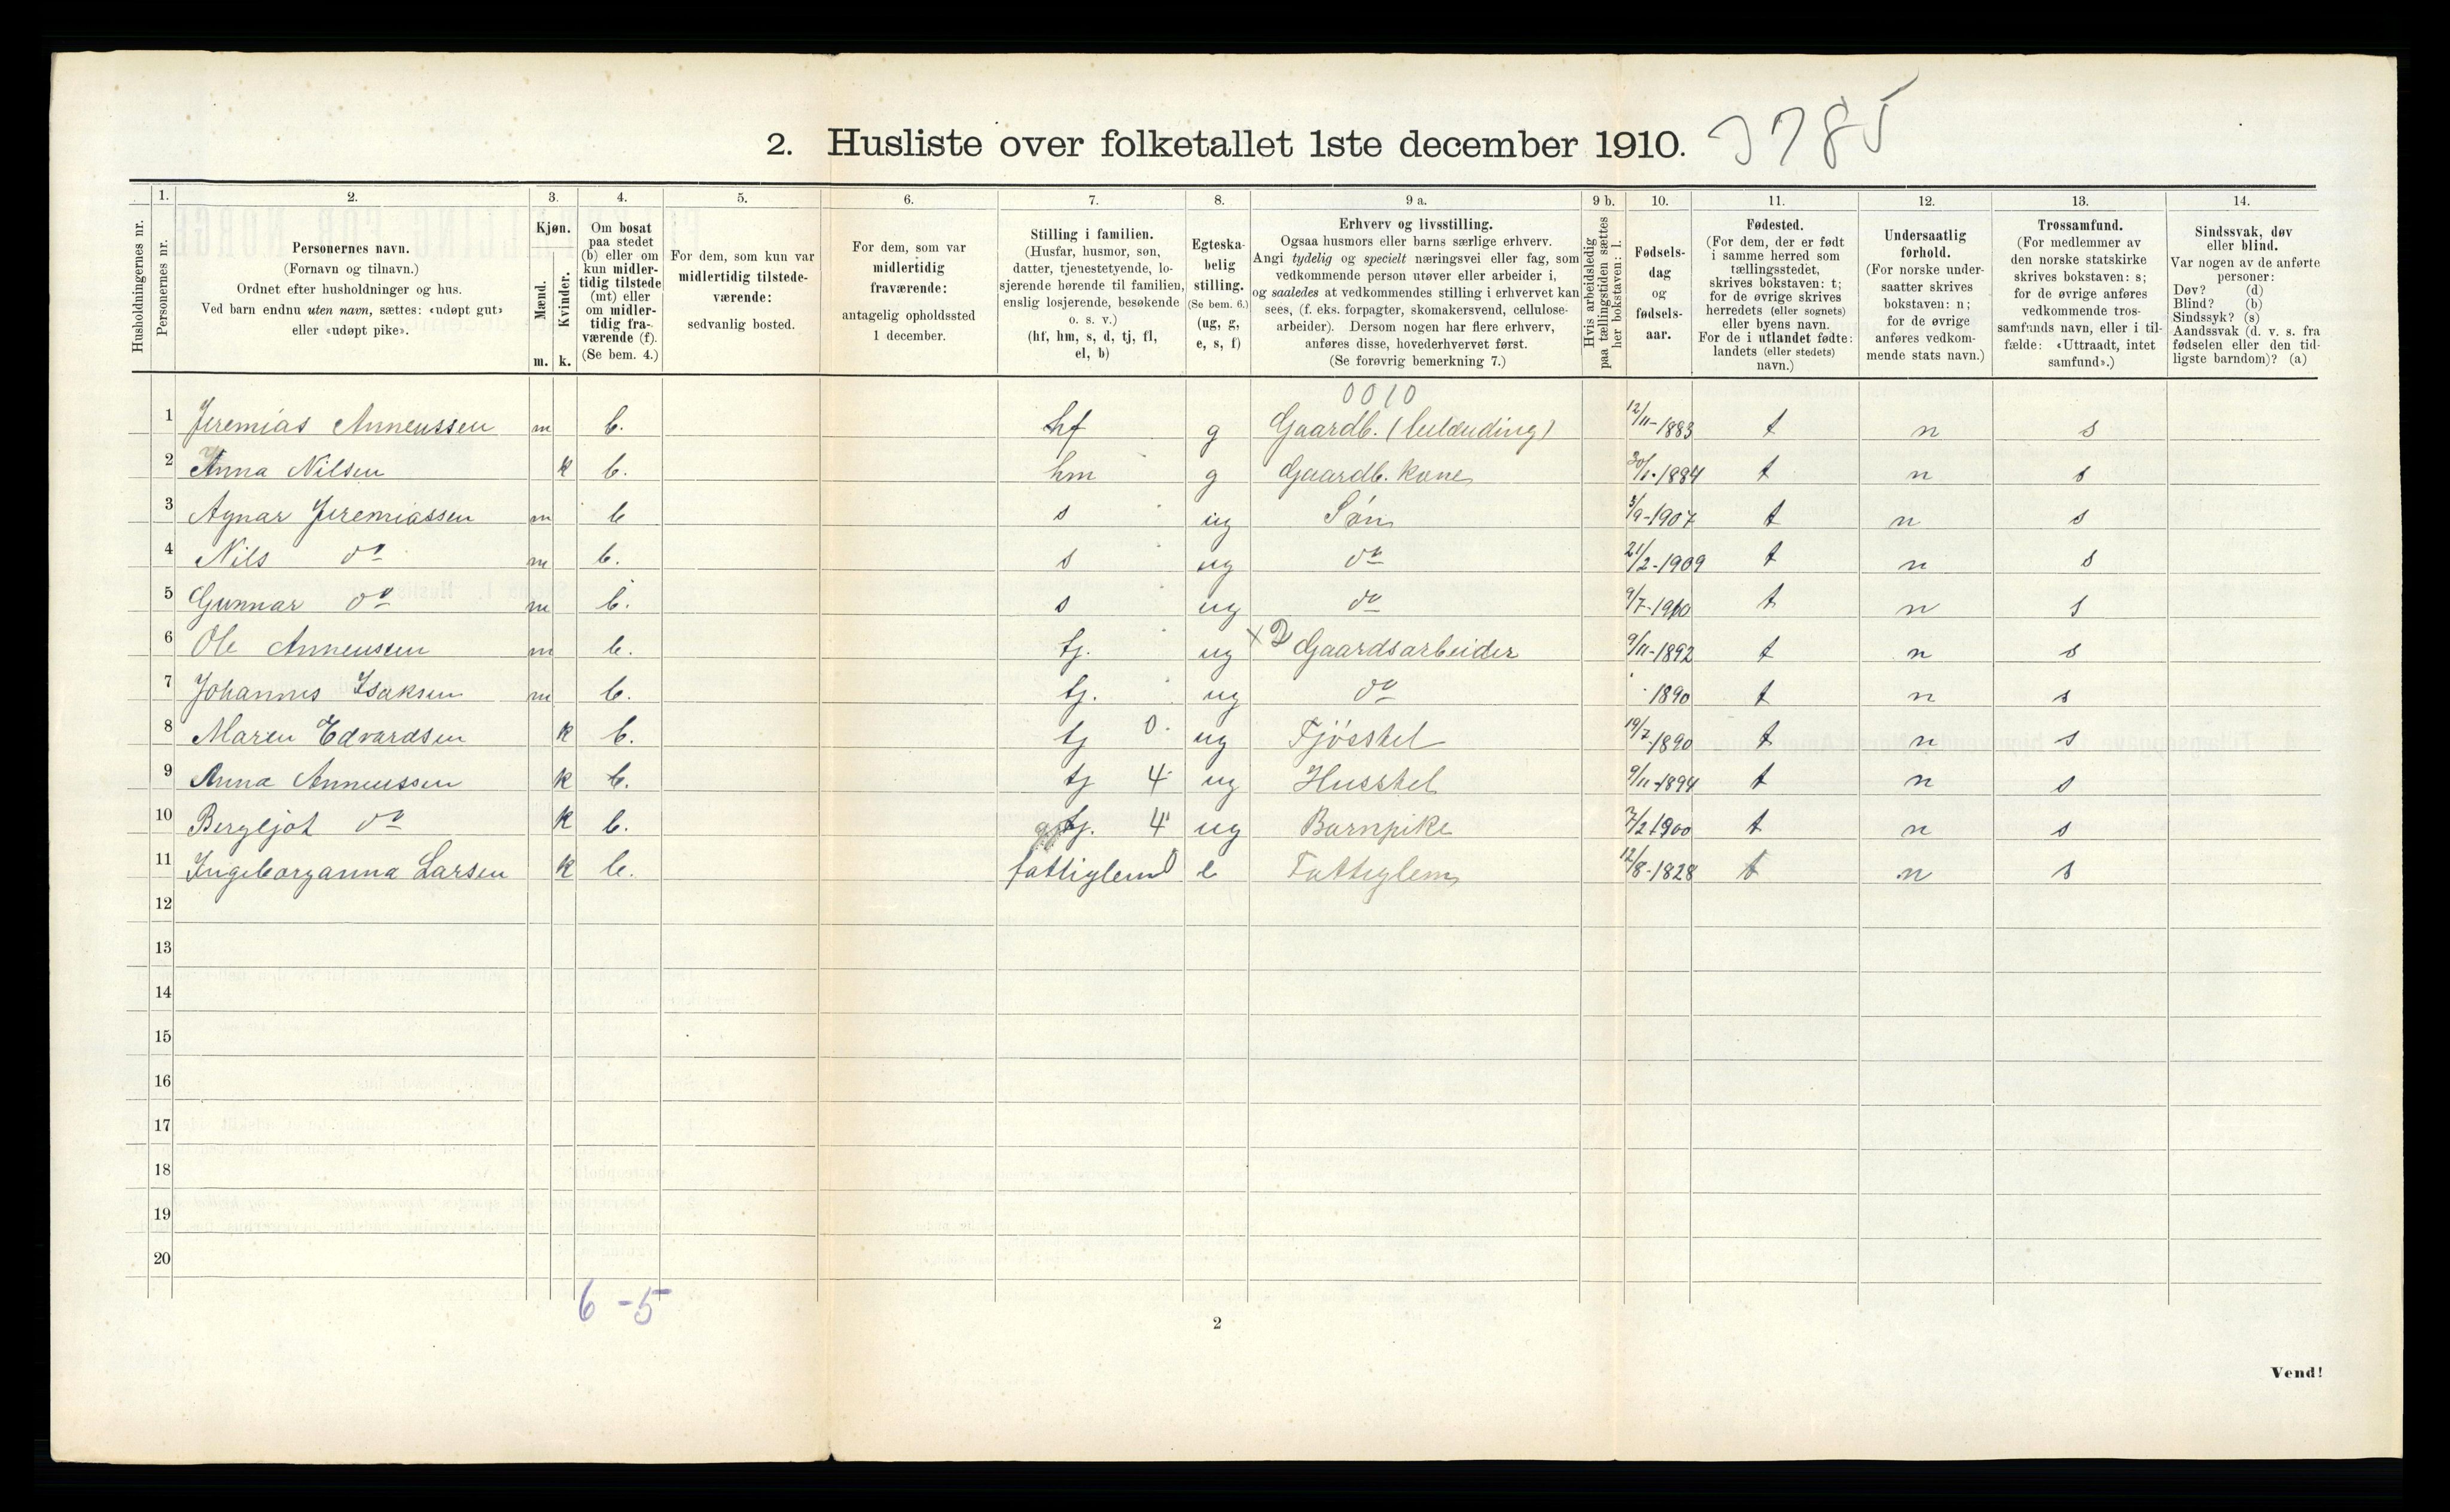 2. Husliste over folketallet 1ste december 1910. 3785
Husholdningernes nr.
1. Personernes nr.
2. Personernes navn.
(Fornavn og tilnavn.)
Ordnet efter husholdninger og hus.
Ved barn endnu uten navn, sættes: «udøpt gut»
eller «udøpt pike».
3. Kjøn.
Mænd. m.
Kvinder. k.
4. Om bosat
paa stedet
(b) eller om
kun midler-
tidig tilstede
(mt) eller
om midler-
tidig fra-
værende (f).
(Se bem. 4.)
5. For dem, som kun var
midlertidig tilstede-
værende:
sedvanlig bosted.
6. For dem, som var
midlertidig
fraværende:
antagelig opholdssted
1 december.
7. Stilling i familien.
(Husfar, husmor, søn,
datter, tjenestetyende, lo-
sjerende hørende til familien,
enslig losjerende, besøkende
o. s. v.)
(hf, hm, s, d, tj, fl,
el, b)
8. Egteska-
belig
stilling.
(Se bem. 6.)
(ug, g,
e, s, f)
9 a. Erhverv og livsstilling.
Ogsaa husmors eller barns særlige erhverv.
Angi tydelig og specielt næringsvei eller fag, som
vedkommende person utøver eller arbeider i,
og saaledes at vedkommendes stilling i erhvervet kan
sees, (f. eks. forpagter, skomakersvend, cellulose-
arbeider). Dersom nogen har flere erhverv,
anføres disse, hovederhvervet først.
(Se forøvrig bemerkning 7.)
9 b. Hvis arbeidsledig
paa tællingstiden sættes
her bokstaven: l.
10. Fødsels-
dag
og
fødsels-
aar.
11. Fødested.
(For dem, der er født
i samme herred som
tællingsstedet,
skrives bokstaven: t;
for de øvrige skrives
herredets (eller sognets)
eller byens navn.
For de i utlandet fødte:
landets (eller stedets)
navn.)
12. Undersaatlig
forhold.
(For norske under-
saatter skrives
bokstaven: n;
for de øvrige
anføres vedkom-
mende stats navn.)
13. Trossamfund.
(For medlemmer av
den norske statskirke
skrives bokstaven: s;
for de øvrige anføres
vedkommende tros-
samfunds navn, eller i til-
fælde: «Uttraadt, intet
samfund».)
14. Sindssvak, døv
eller blind.
Var nogen av de anførte
personer:
Døv? (d)
Blind? (b)
Sindssyk? (s)
Aandssvak (d. v. s. fra
fødselen eller den tid-
ligste barndom)? (a)
0010
1 Jeremias Anneussen m b. hf g Gaardb. 12/11-1883 t n s
2 Anna Nilsen k b. hm g Gaardb. kone 30/1-1884 t n s
3 Agnar Jeremiassen m b s ug Søn 3/9-1907 t n s
4 Nils do m b. s ug do 21/2-1909 t n s
5 Gunnar do m b. s ug do 9/7-1910 t n s
6 Ole Anneussen m b. tj. ug Gaardsarbeider 9/11-1892 t n s
7 Johannes Isaksen m b. tj. ug do 1890 t n s
8 Maren Edvardsen k b. tj 0 ug Fjøsstel 19/7-1890 t n s
9 Anna Anneussen k b. tj 4 ug Husstel 9/11-1894 t n s
10 Bergljot do k b. tj. 4 ug Barnpike 7/2 1900 t n s
11 Ingeborganna Larsen k b. fattiglem e Fattiglem 12/8-1828 t n s
12
13
14
15
16
17
18
19
20
6-5
2
Vend!